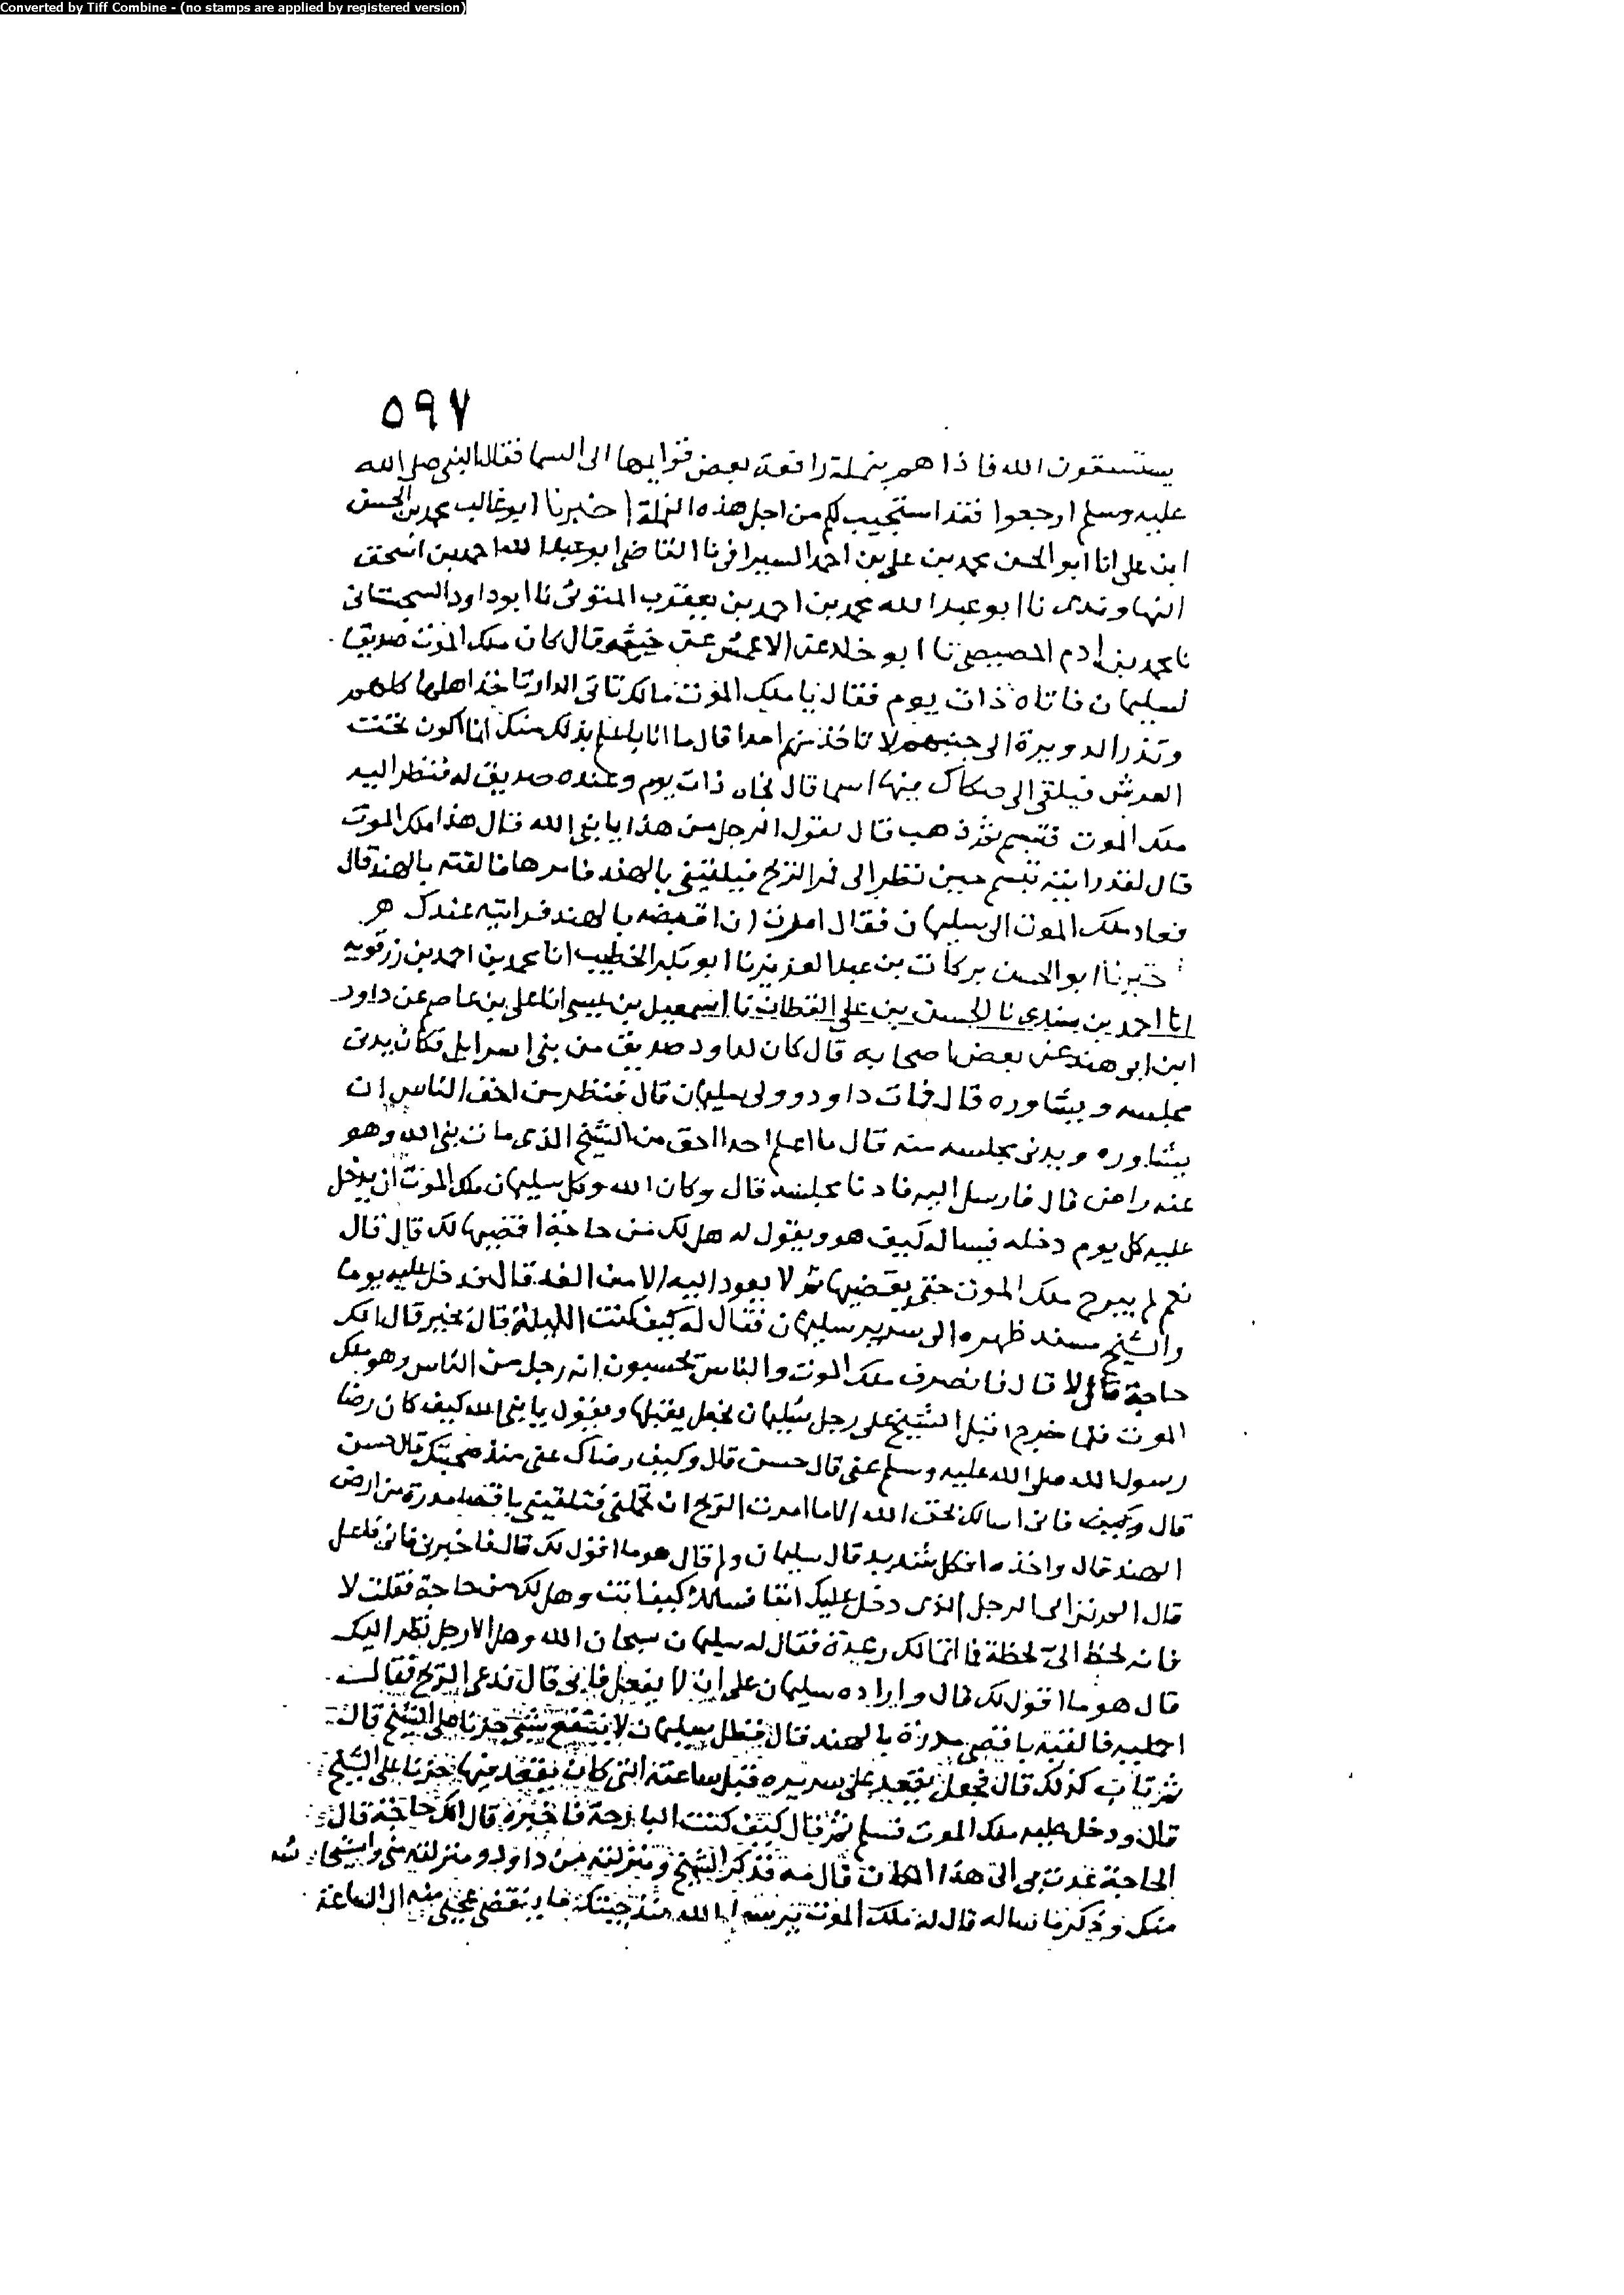 Converted by Tiff Combine - (no stamps are applied by registered version)
٥٩٧
يستسقون الله فاذا هم بنملة رافعة بعض قوايمها الى السما فقال النبي صلى الله
عليه وسلم ارجعوا فقد استجيب لكم من اجل هذه النملة اخبرنا ابو غالب محمد بن الحسن
ابن علي انا ابو الحسن محمد بن علي بن احمد السيرافي نا القاضي ابو عبد الله احمد بن اسحق
النهاوندى نا ابو عبد الله محمد بن احمد بن يعقوب المتوثى نا ابو داود السجستاني
نا محمد بن ادم المصيصي نا ابو خلد عن الاعمش عن خيثمه قال كان ملك الموت صديقا
لسليمان فاتاه ذات يوم فقال يا ملك الموت مالك تاتي الدار تاخذ اهلها كلهم
وتذر الدويرة الى جنبهم لا تاخذ منهم احدا قال ما انا باعلم بذلك منك انما اكون تحت
العرش فيلقى الى صكاك فيها اسما قال فجاه ذات يوم وعنده صديق له فنظر اليه
ملك الموت فتبسم ثم ذهب قال فقال الرجل من هذا يا نبي الله قال هذا ملك الموت
قال لقد رايته تبسم حين نظر الى فمر الريح فيلقيني بالهند فامرها فالقته بالهند قال
فعاد ملك الموت الى سليمان فقال امرت ان اقبضه بالهند فرايته عندك
خبرنا ابو الحسن بركات بن عبد العزيز نا ابو بكر الخطيب انا محمد بن احمد بن رزقويه
انا احمد بن سندى نا الحسن بن علي القطان نا اسمعيل بن عيسى انا علي بن عاصم عن داود
ابن ابو هند عن بعض اصحابه قال كان لداود صديق من بني اسرايل فكان يدنى
مجلسه ويشاوره قال فمات داود وولى سليمان قال فنظر من احق الناس ان
يشاوره ويدنى مجلسه منه قال ما اعلم احدا احق من الشيخ الذى مات نبي الله وهو
عنه راض قال فارسل اليه فادنا مجلسه قال وكان الله وكل سليمان ملك الموت ان يدخل
عليه كل يوم دخله فيساله كيف هو ويقول له هل لك من حاجة اقضيها لك قال قال
نعم لم يبرح ملك الموت حتى يقضيها ثم لا يعود اليه الا من الغد قال فدخل عليه يوما
والشيخ مسند ظهره الى سرير سليمان فقال له كيف كنت الليلة قال بخير قال الك
حاجة قال لا قال فانصرف ملك الموت والناس يحسبون انه رجل من الناس وهو ملك
الموت فلما خرج اقبل الشيخ على رجل سليمان فجعل يقبلها ويقول يا نبي الله كيف كان رضا
رسول الله صلى الله عليه وسلم عنى قال حسن قال وكيف رضاك عنى منذ صحبتك قال حسن
قال فاني اسالك بحق الله الا ما امرت الريح ان تحملنى فتلقيني باقصا مدرة من ارض
الهند قال واخذه افكل شديد قال سليمان ولم قال هو ما اقول لك قال فاخبرني
قال الم تر الى الرجل الذى دخل عليك انفا فسالك كيف انت وهل لك من حاجة فقلت لا
فانه لحظ الي لحظة فا رعدة فقال له سليمان سبحان الله وهل الا رجل نظر اليك
قال هو ما اقول لك قال واراده سليمان على ان لا يفعل فابى قال فدعى الريح فقالت
احمليه فالقيه باقصى مدرة بالهند قال فظل سليمان لا ينتفع بشي حزنا على الشيخ قال
ثم بات كذلك قال فجعل يقعد على سريره قبل ساعته التى كان يقعد فيها حزنا على الشيخ
قال ودخل عليه ملك الموت فسلم ثم قال كيف كنت البارحة فاخبره قال الك حاجة قال
الحاجة غدت بي الى هذا المكان قال مه فذكر الشيخ ومنزلته من داود ومنزلته منى
منك وذكر ما ساله قال له ملك الموت منذ جيتك ما ينقضى عجبي منه الى الساعة